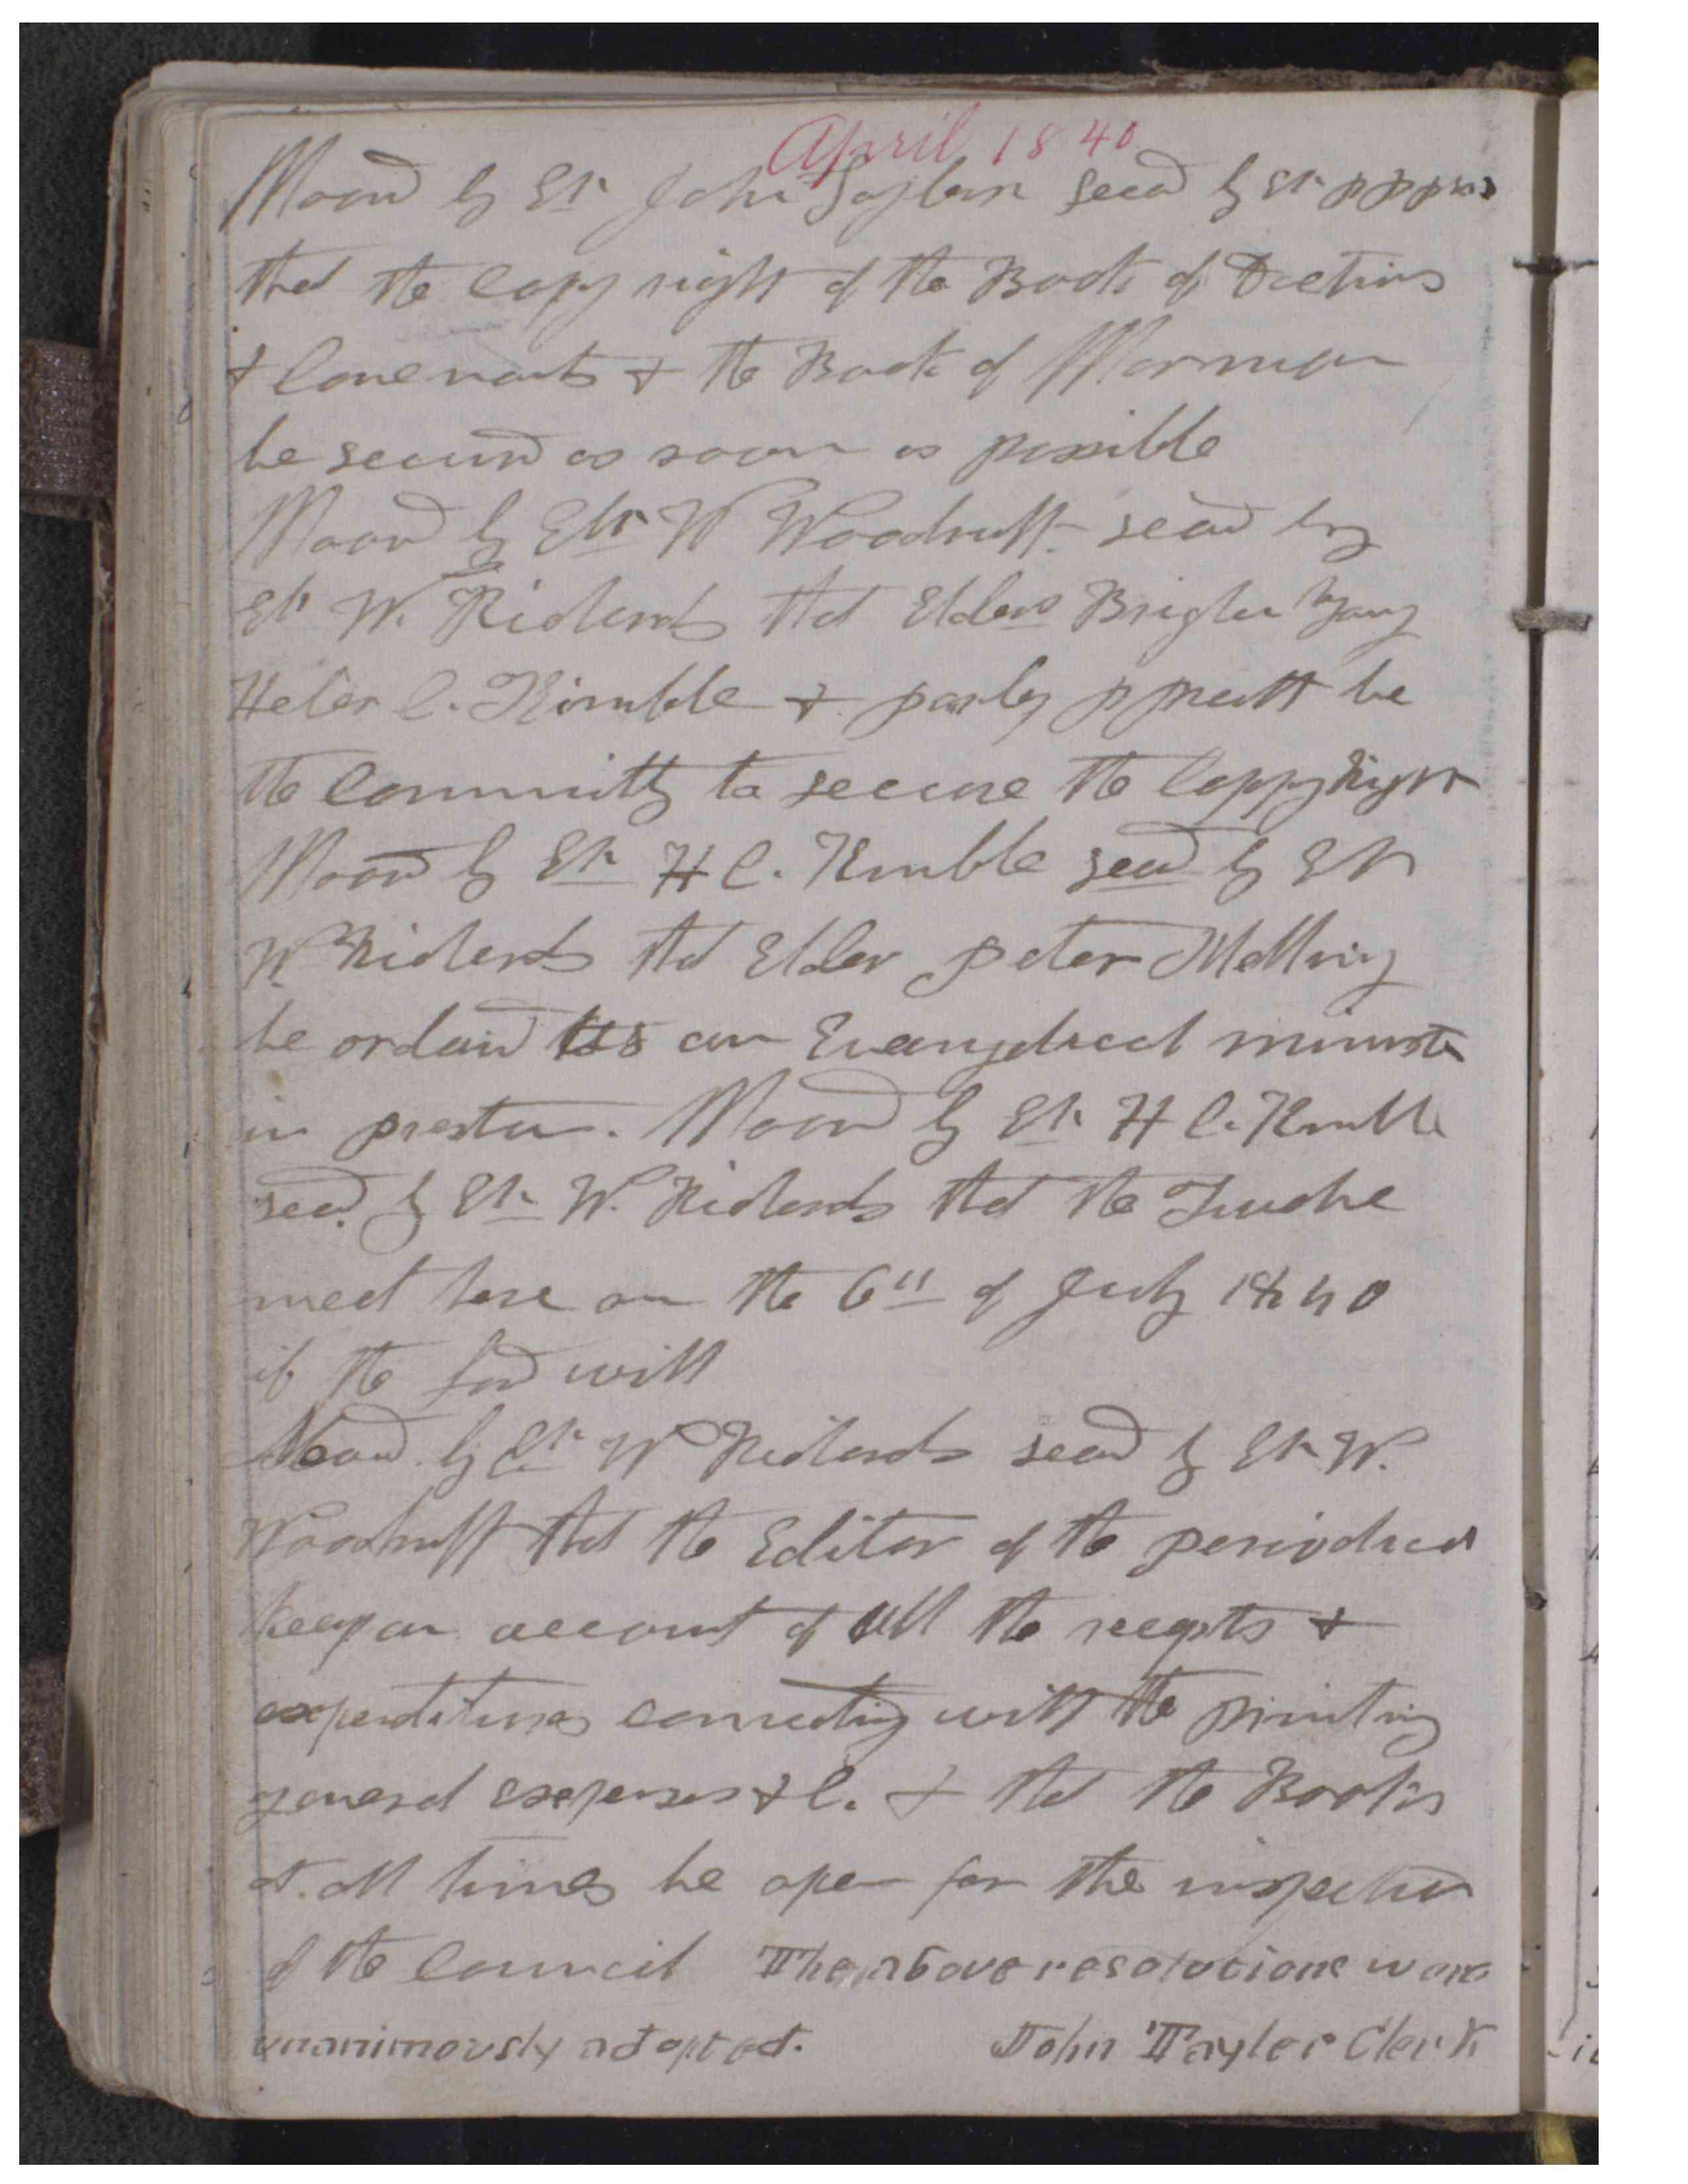 April 1840
Moovd by Er John Taylor secd by Er P P Pratt
that the Copy right of the Book of Doctrins
& Covenants & the Book of Mormon
be secured as soon as possible
Moovd by Eldr W Woodruff secd by
Er W. Richards that Elders Brigham Young
Heber C. Kimble & Parley P Pratt be
the Committy to secure the Coppyright
Moovd by Er H C. Kimble secd by Er
W. Richards that Elder Peter Melling
be ordaind as an Evangelical minister
in Preston. Moovd by Er H C. Kimble
secd by Er W. Richards that the Twelve
meet here on the 6th of July 1840
if the Lord will
Moovd by Er W Richards secd by Er W.
Woodruff that the Editor of the periodical
keep an account of all the recepts &
expenditures connecting with the printing
general expenses & C. & that the Books
at all times be open for the inspection
of the Council The above resolutions were
unanimously adopted. John Taylor Clerk